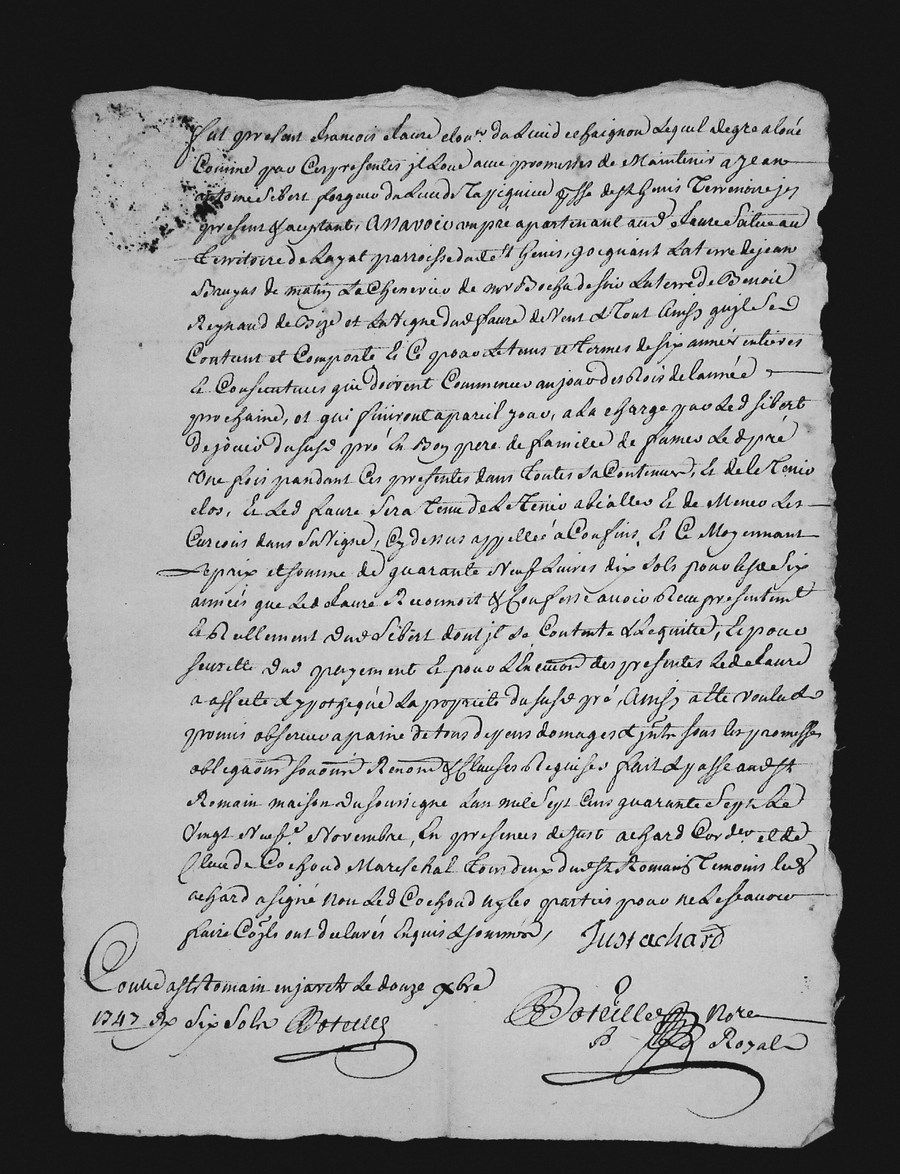 fut present francois faure clour du lieud chaignon Lequel de gre a loüé
Comme par Ces presentes jl Loue avec promesses de Maintenir a jean
antome Sibert forgeur du Lieu de prsse de St Genis Terrenoire jcy
present & aceptant, Assavoir un pre apartenant aud faure Situe au
Territoire de Layat parroisse dud St Genis, joignant La terre de jean
Bruyas de matin La Cheneviere de mr Bocha de soir La terre de Benoit
Reynaud de Bize et La Vigne dud faure de Vent & Tout Ainsy qu'jl se
Contient et Comporte Et Ce pour Le tems et termes de six années entieres
Et Consecutives qui doivent Commencer au jour des Rois de L'année
prochaine, et qui finiront a pareil jour, a La charge par Led sibert
de joüir du susd pré En Bon pere de famille de fumer Led pré
Une fois pandant Ces presentes dans Toutes sa Contenue, Et de Le Tenir
clos, Et Led faure sera tenu de Le Tenir Et de Mener Les
dans sa Vigne, Cy dessus appellée a Confins, Et Ce Moyennant
Le prix et somme de quarante Neuf Livres dix sols pour Lesd Six
années que Led faure Reconnoit & Confesse avoir Reçu presentemt
Et Réellement dud Sibert dont jl se Contente & Le quitte, Et pour
seureté dud payement Et pour L'Execuon des presentes Led faure
a affecté & ypothequé La proprieté du susd pré, Ainsy a été voulu &
promis observer a paine de tous depens domages & jntr sous les promesses
obligaons soumons Renons & Clauses Requises fait & passe aud St
Romain maison du soussigne L'an mil sept cens quarante sept Le
Vingt Neufe Novembre, En presences de just achard Cordr et de
Claude Cochoud Mareschal tous deux dud St Romain Temoins Led
achard a signé non Led Cochoud ny les parties pour ne Le sçavoir
faire Comme jls ont declarés Enquis & sommés,
Just achard
Conlle a St Romain en jarets Le douze xbre
1747 Rx Six Sols Boteille
Boteille Nore
Royal